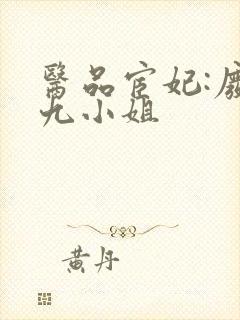 醫品宦妃:廢
九小姐
黄丹